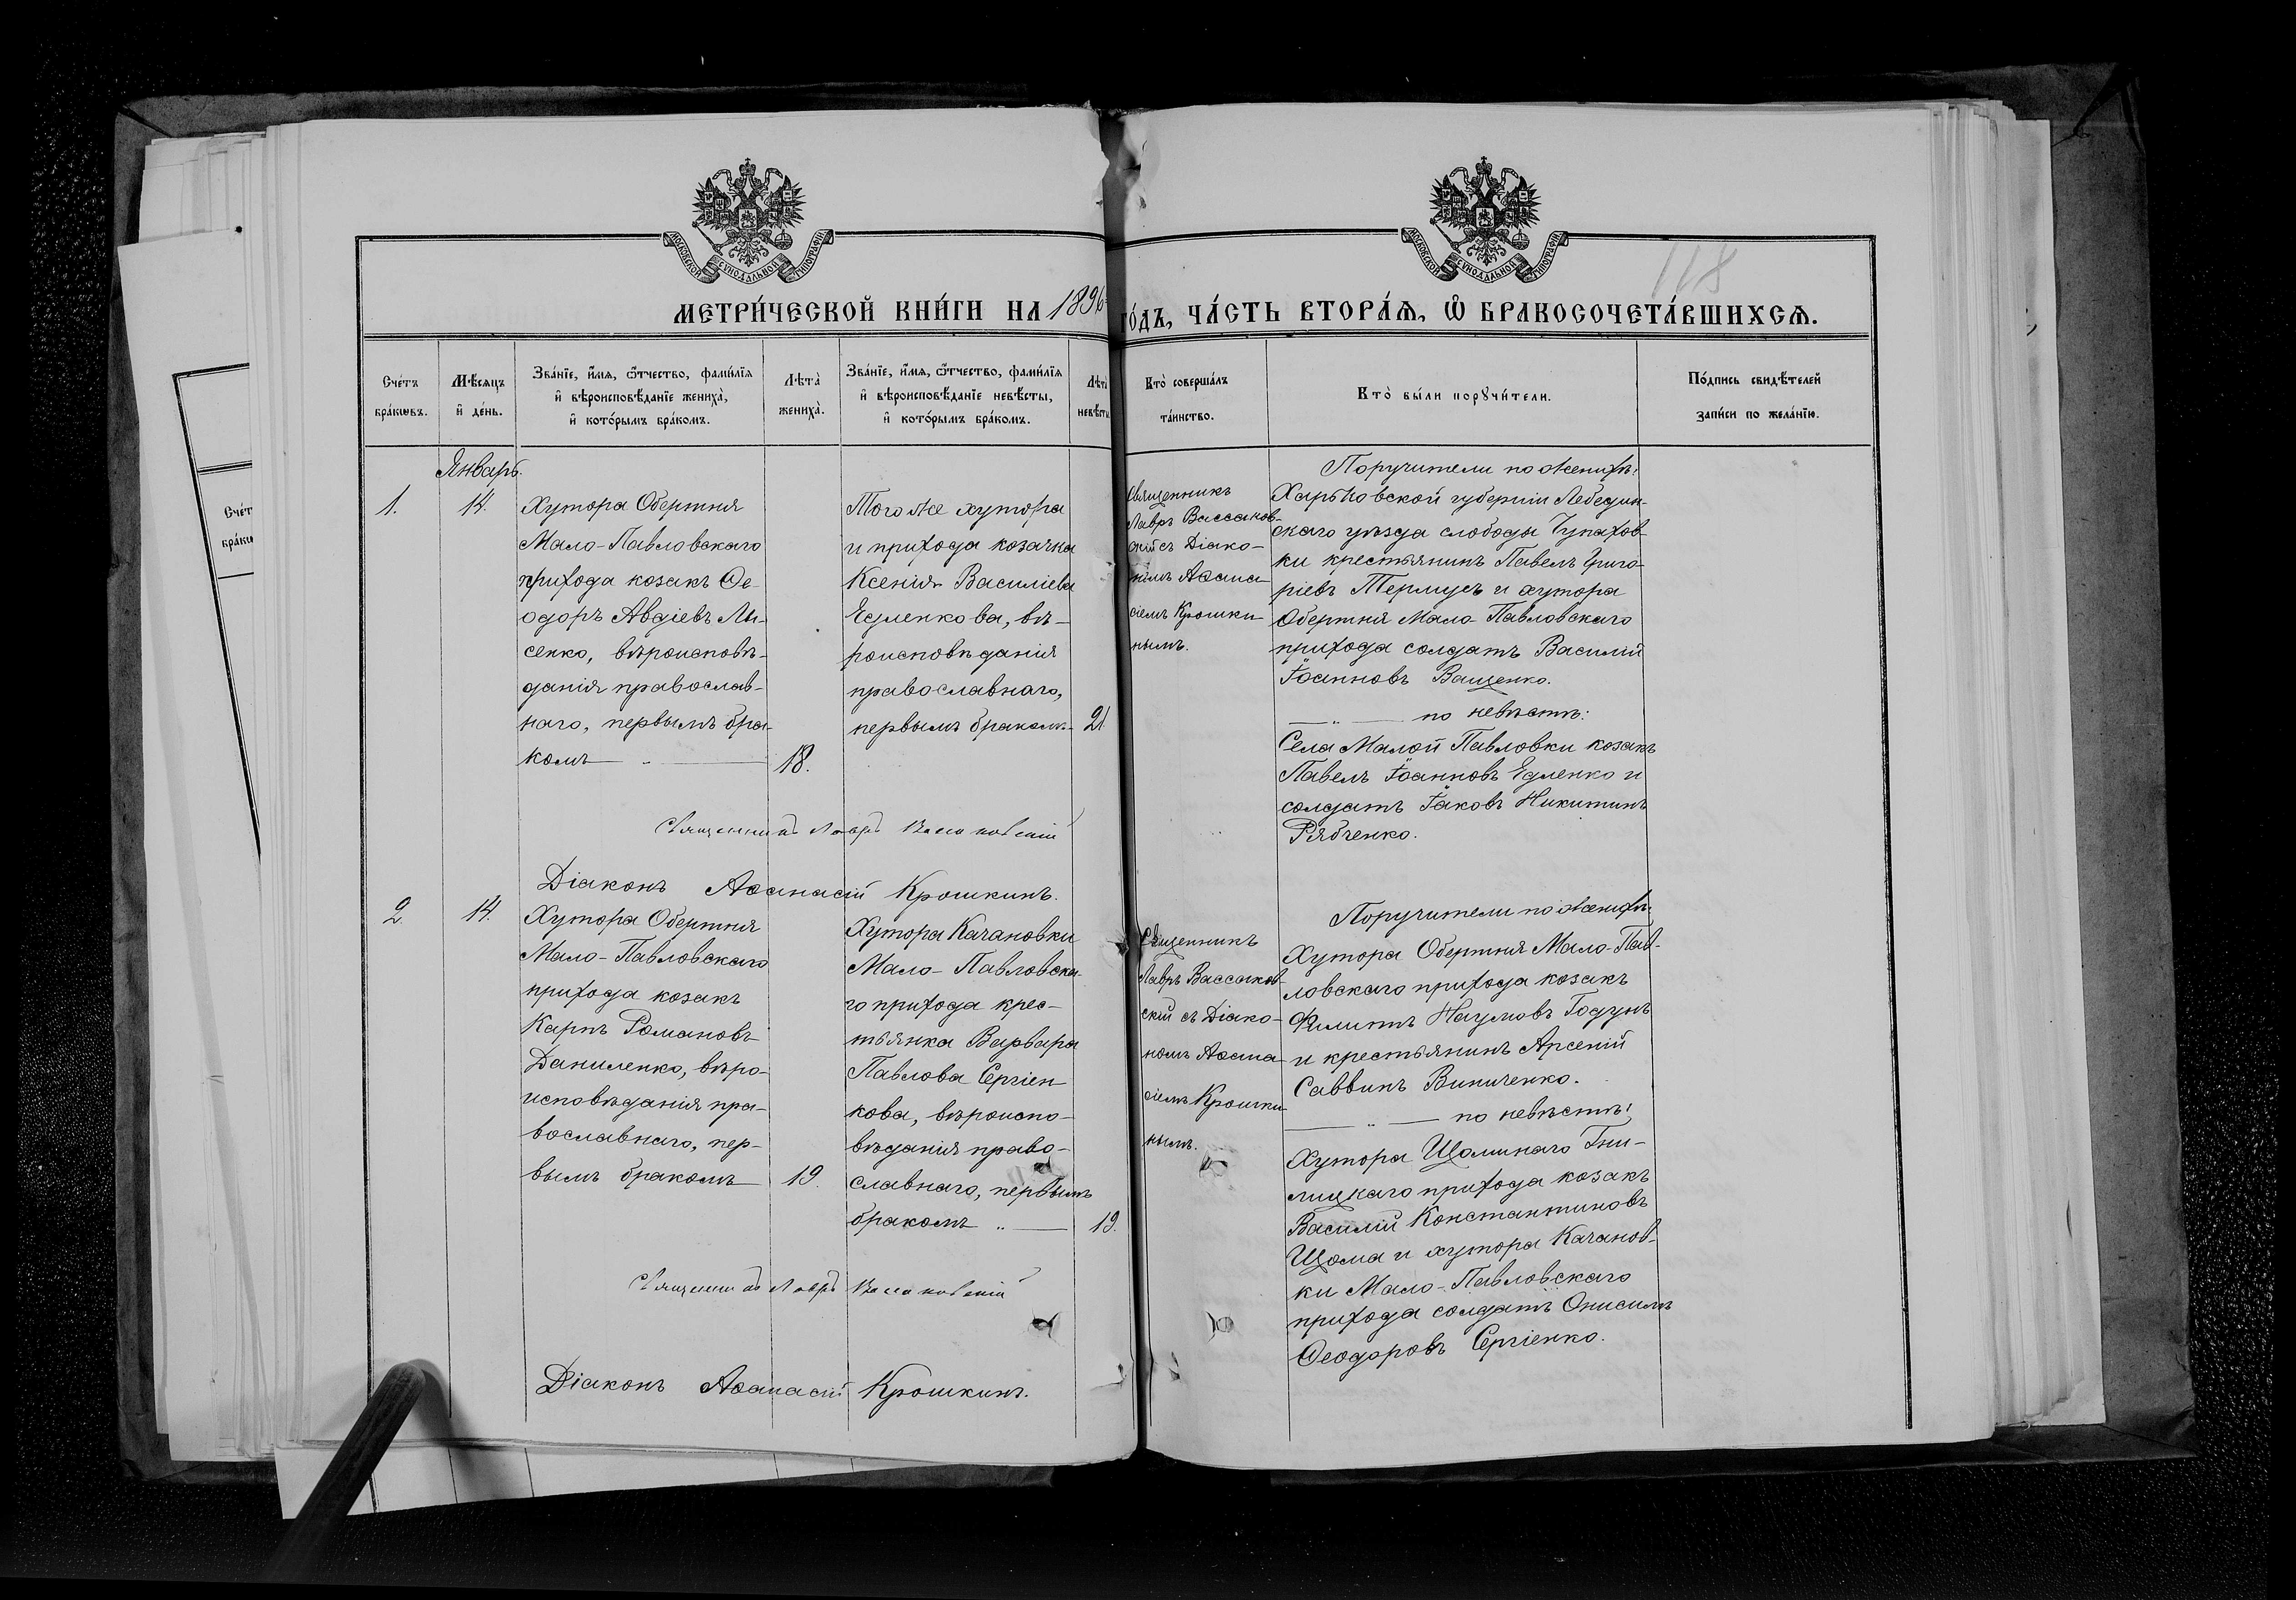 МОСКОВСКОЙ СѴНОДАЛЬНОЙ ТИПОГРАФІИ
МОСКОВСКОЙ СѴНОДАЛЬНОЙ ТИПОГРАФІИ
118
МЕТРИ́ЧЕСКОЙ КНИ́ГИ НА 1896
ГО́ДЪ, ЧА́СТЬ ВТОРА́Ѧ, Ѡ҆ БРАКОСОЧЕТА́ВШИХСѦ.
Сче́тъ
бра́кѡвъ.
Мѣ́сяцъ
и҆ де́нь.
Зва́нїе, и҆́мѧ, ѻ҆́тчество, фами́лїѧ
и҆ вѣроисповѣ́данїе жениха̀,
и҆ кото́рымъ бра́комъ.
Лѣ́та
жениха̀.
Зва́нїе, и҆́мѧ, ѻ҆́тчество, фами́лїѧ
и҆ вѣроисповѣ́данїе невѣ́сты,
и҆ кото́рымъ бра́комъ.
Лѣ́та
невѣ́сты
Кто̀ соверша́лъ
та́инство.
Кто̀ бы́ли порꙋчи́тели.
По́дпись свидѣ́телей
за́писи по жела́нїю.
Счет
брако
Январь.
1.
14.
Хутора Обертня
Мало-Павловскаго
прихода козакъ Ѳе-
одоръ Авдіевъ Ли-
сенко, вѣроисповѣ-
данія православ-
наго, первымъ бра-
комъ
18.
Того же хутора
и прихода козачка
Ксенія Василіева
Едленкова, вѣ-
роисповѣданія
православнаго,
первымъ бракомъ
21
Священникъ
Лавръ Вассаков-
скій съ Діако-
номъ Аѳана-
сіемъ Крошки-
нымъ.
Поручители по женихѣ:
Харьковской губерніи Лебедин-
скаго уѣзда слободы Чупахов-
ки крестьянинъ Павелъ Григо-
ріевъ Термусъ и хутора
Обертня Мало-Павловскаго
прихода солдатъ Василій
Іоанновъ Ващенко.
по невѣстѣ:
Села Малой Павловки козакъ
Павелъ Іоанновъ Едленко и
солдатъ Іаковъ Никитинъ
Рябченко.
Священникъ Лавръ Вассаковскій
Діаконъ Аѳанасій Крошкинъ.
2
14.
Хутора Обертня
Мало-Павловскаго
прихода козакъ
Карпъ Романовъ
Даниленко, вѣро-
исповѣданія пра-
вославнаго, пер-
вымъ бракомъ
19.
Хутора Качановки
Мало-Павловска-
го прихода крес-
тьянка Варвара
Павлова Сергіен-
кова, вѣроиспо-
вѣданія право-
славнаго, первымъ
бракомъ
19.
Священникъ
Лавръ Вассаков-
скій съ Діако-
номъ Аѳана-
сіемъ Крошки-
нымъ.
Поручители по женихѣ:
Хутора Обертня Мало-Пав-
ловскаго прихода козакъ
Филиппъ Наумовъ Годунъ
и крестьянинъ Арсеній
Саввинъ Виниченко.
по невѣстѣ:
Хутора Щоминаго Гни-
лицкаго прихода козакъ
Василій Константиновъ
Щома и хутора Качанов-
ки Мало-Павловскаго
прихода солдатъ Онисимъ
Ѳеодоровъ Сергіенко.
Священникъ Лавръ Вассаковскій
Діаконъ Аѳанасій Крошкинъ.